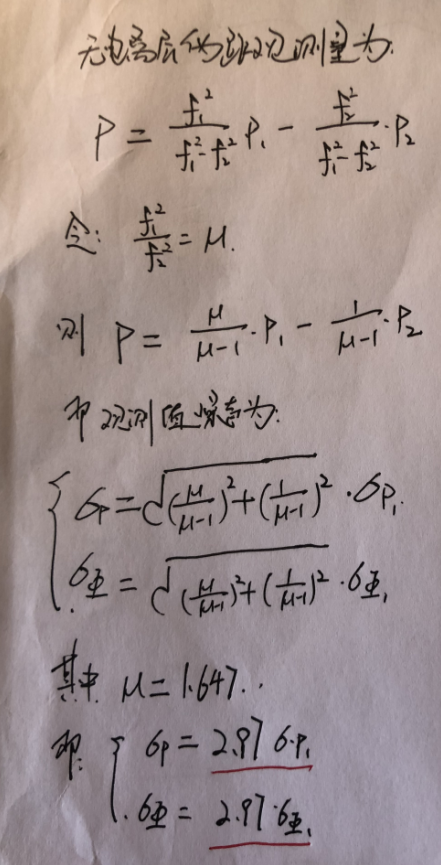 无电离层伪距观测量为:
P = \frac{f_1^2}{f_1^2 - f_2^2} P_1 - \frac{f_2^2}{f_1^2 - f_2^2} \cdot P_2
令: \frac{f_1^2}{f_2^2} = μ.
则 P = \frac{μ}{μ-1} \cdot P_1 - \frac{1}{μ-1} \cdot P_2
即观测值噪声为:
σ_P = \sqrt{(\frac{μ}{μ-1})^2 + (\frac{1}{μ-1})^2} \cdot σ_{P_1}.
σ_Φ = \sqrt{(\frac{μ}{μ-1})^2 + (\frac{1}{μ-1})^2} \cdot σ_{Φ_1}
其中 μ = 1.647..
即: σ_P = 2.97 σ_{P_1}
σ_Φ = 2.97 \cdot σ_{Φ_1}